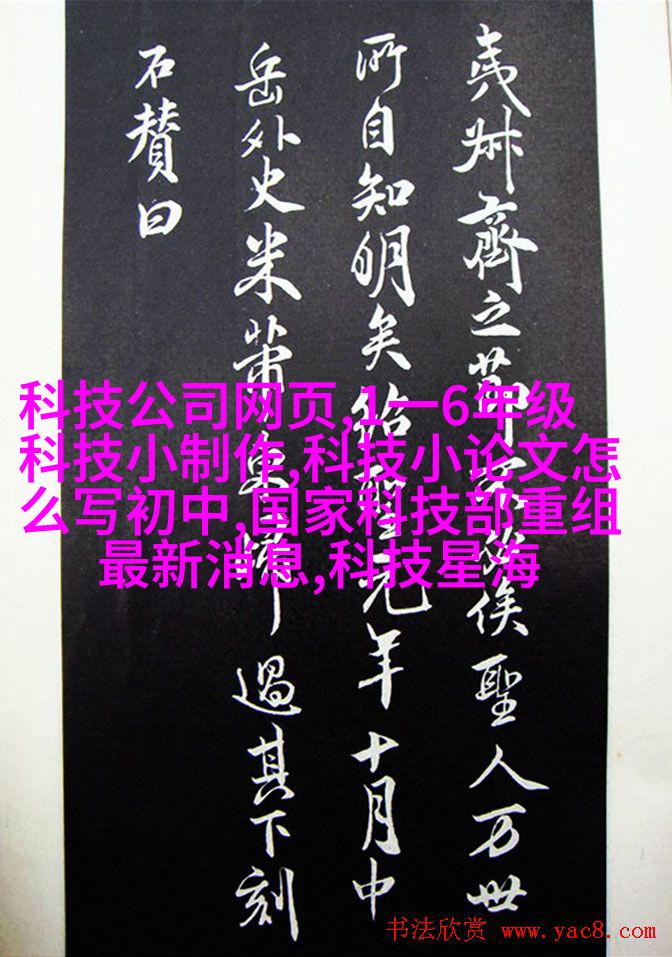 夷叔齊之節俟聖人万世
所自知明矣紹聖元年十月中
岳外史米芾東歸過其下刻
石贊曰
科技公司网页,1一6年级
科技小制作,科技小论文怎
么写初中,国家科技部重组
最新消息,科技星海
书法欣赏 www.yac8.com